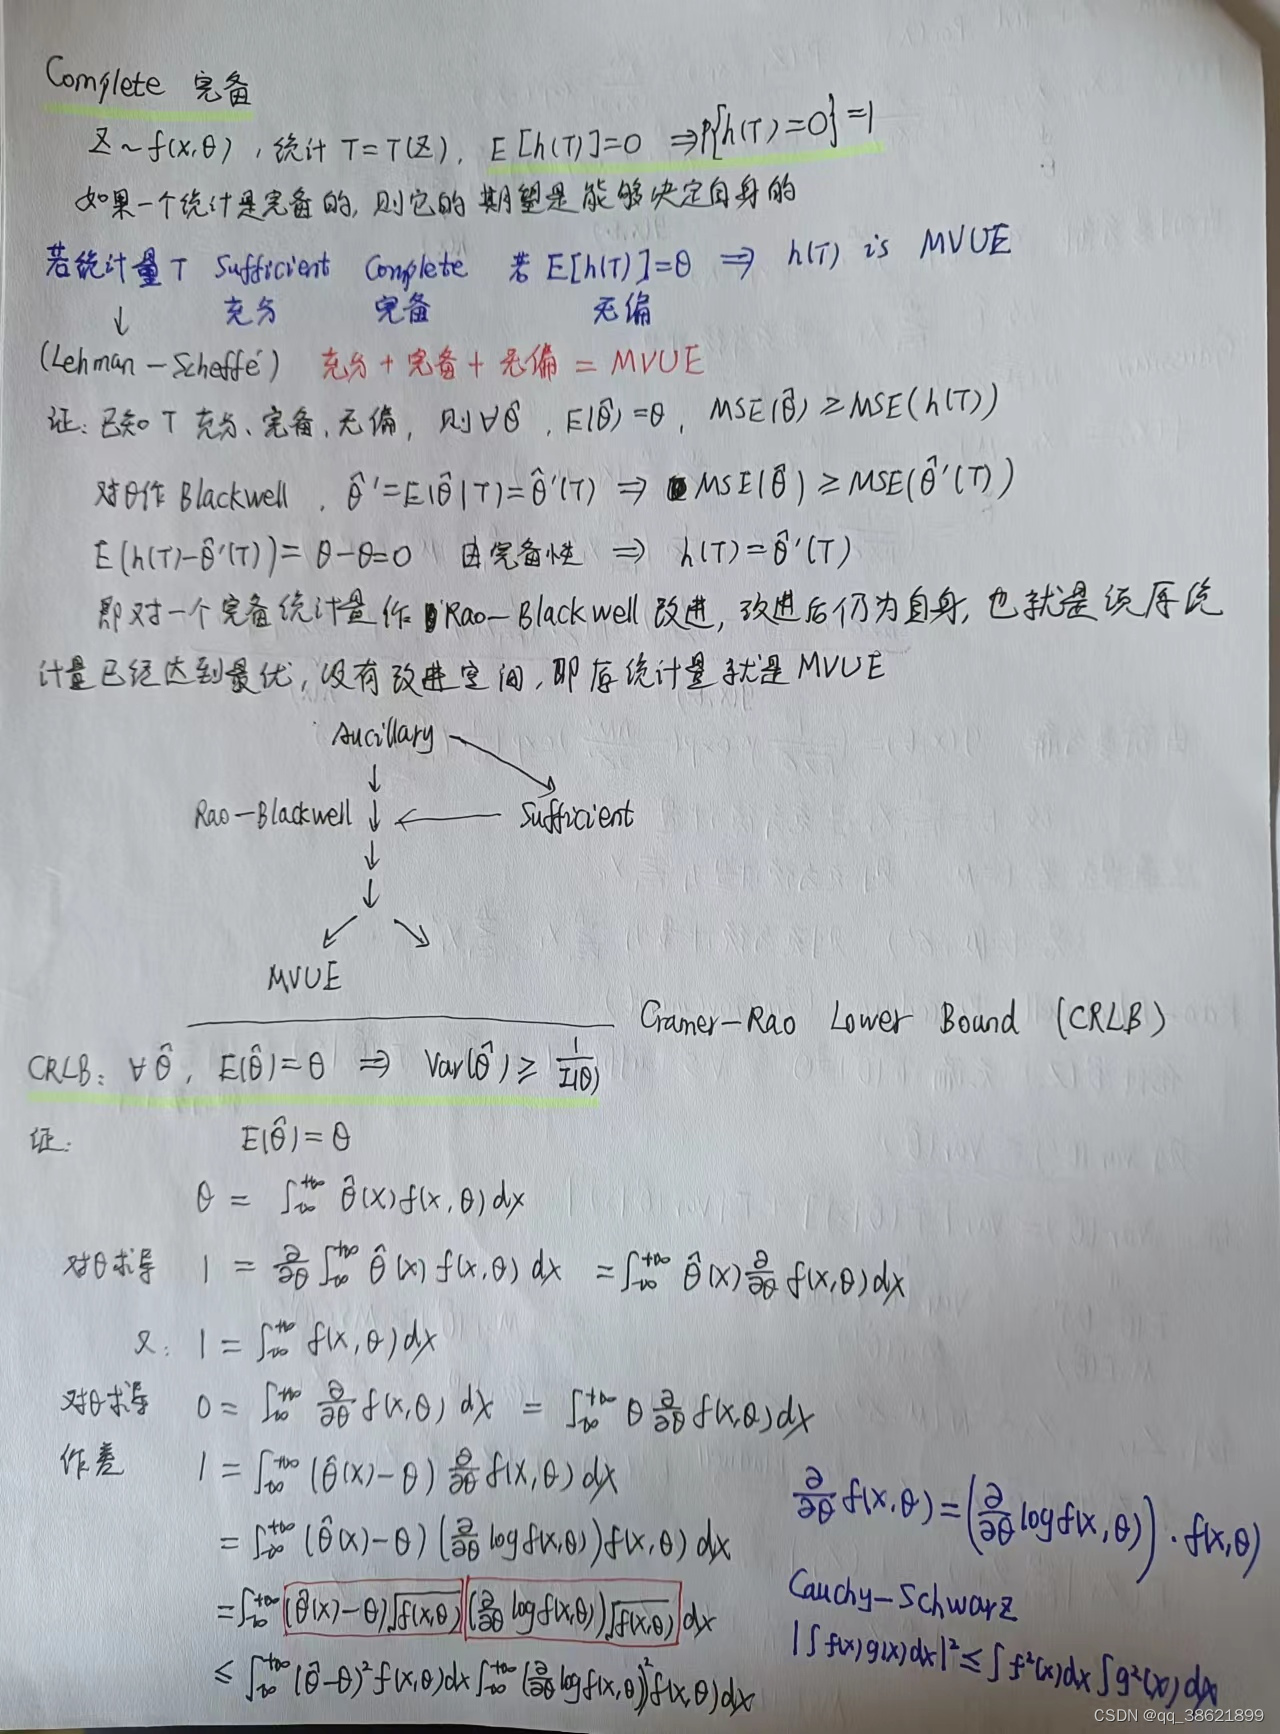 Complete 完备
Z~f(x,θ), 统计 T=T(Z), E[h(T)]=0 ⇒P{h(T)=0}=1
如果一个统计是完备的, 则它的期望是能够决定自身的
若统计量 T Sufficient Complete 若 E[h(T)]=θ ⇒ h(T) is MVUE
↓ 充分 完备 无偏
(Lehman-Scheffé) 充分+完备+无偏 = MVUE
证: 已知 T 充分、完备、无偏, 则∀θ̂, E(θ̂)=θ, MSE(θ̂) ≥ MSE(h(T))
对θ作 Blackwell, θ̂'=E(θ̂|T)=θ̂'(T) ⇒ MSE(θ̂) ≥ MSE(θ̂'(T))
E(h(T)-θ̂'(T))= θ-θ=0 由完备性 ⇒ h(T)=θ̂'(T)
即对一个完备统计量作 Rao-Blackwell 改进, 改进后仍为自身, 也就是该原统
计量已经达到最优, 没有改进空间, 即原统计量就是 MVUE
Aucillary
↓
Rao-Blackwell ↓ ← Sufficient
↓
↓
↙ ↘
MVUE
Cramer-Rao Lower Bound (CRLB)
CRLB: ∀θ̂, E(θ̂)=θ ⇒ Var(θ̂) ≥ 1/I(θ)
证: E(θ̂)=θ
θ = ∫_{-∞}^{+∞} θ̂(x)f(x,θ)dx
对θ求导 1 = ∂/∂θ ∫_{-∞}^{+∞} θ̂(x) f(x,θ) dx = ∫_{-∞}^{+∞} θ̂(x) ∂/∂θ f(x,θ)dx
又: 1 = ∫_{-∞}^{+∞} f(x,θ)dx
对θ求导 0 = ∫_{-∞}^{+∞} ∂/∂θ f(x,θ) dx = ∫_{-∞}^{+∞} θ ∂/∂θ f(x,θ)dx
作差 1 = ∫_{-∞}^{+∞} (θ̂(x)-θ) ∂/∂θ f(x,θ) dx
= ∫_{-∞}^{+∞} (θ̂(x)-θ) (∂/∂θ log f(x,θ)) f(x,θ) dx
= ∫_{-∞}^{+∞} (θ̂(x)-θ)√f(x,θ) (∂/∂θ log f(x,θ))√f(x,θ) dx
≤ ∫_{-∞}^{+∞} (θ̂-θ)² f(x,θ)dx ∫_{-∞}^{+∞} (∂/∂θ log f(x,θ))² f(x,θ)dx
∂/∂θ f(x,θ) = (∂/∂θ log f(x,θ)) · f(x,θ)
Cauchy-Schwarz
|∫f(x)g(x)dx|² ≤ ∫f²(x)dx ∫g²(x)dx
CSDN @qq_38621899